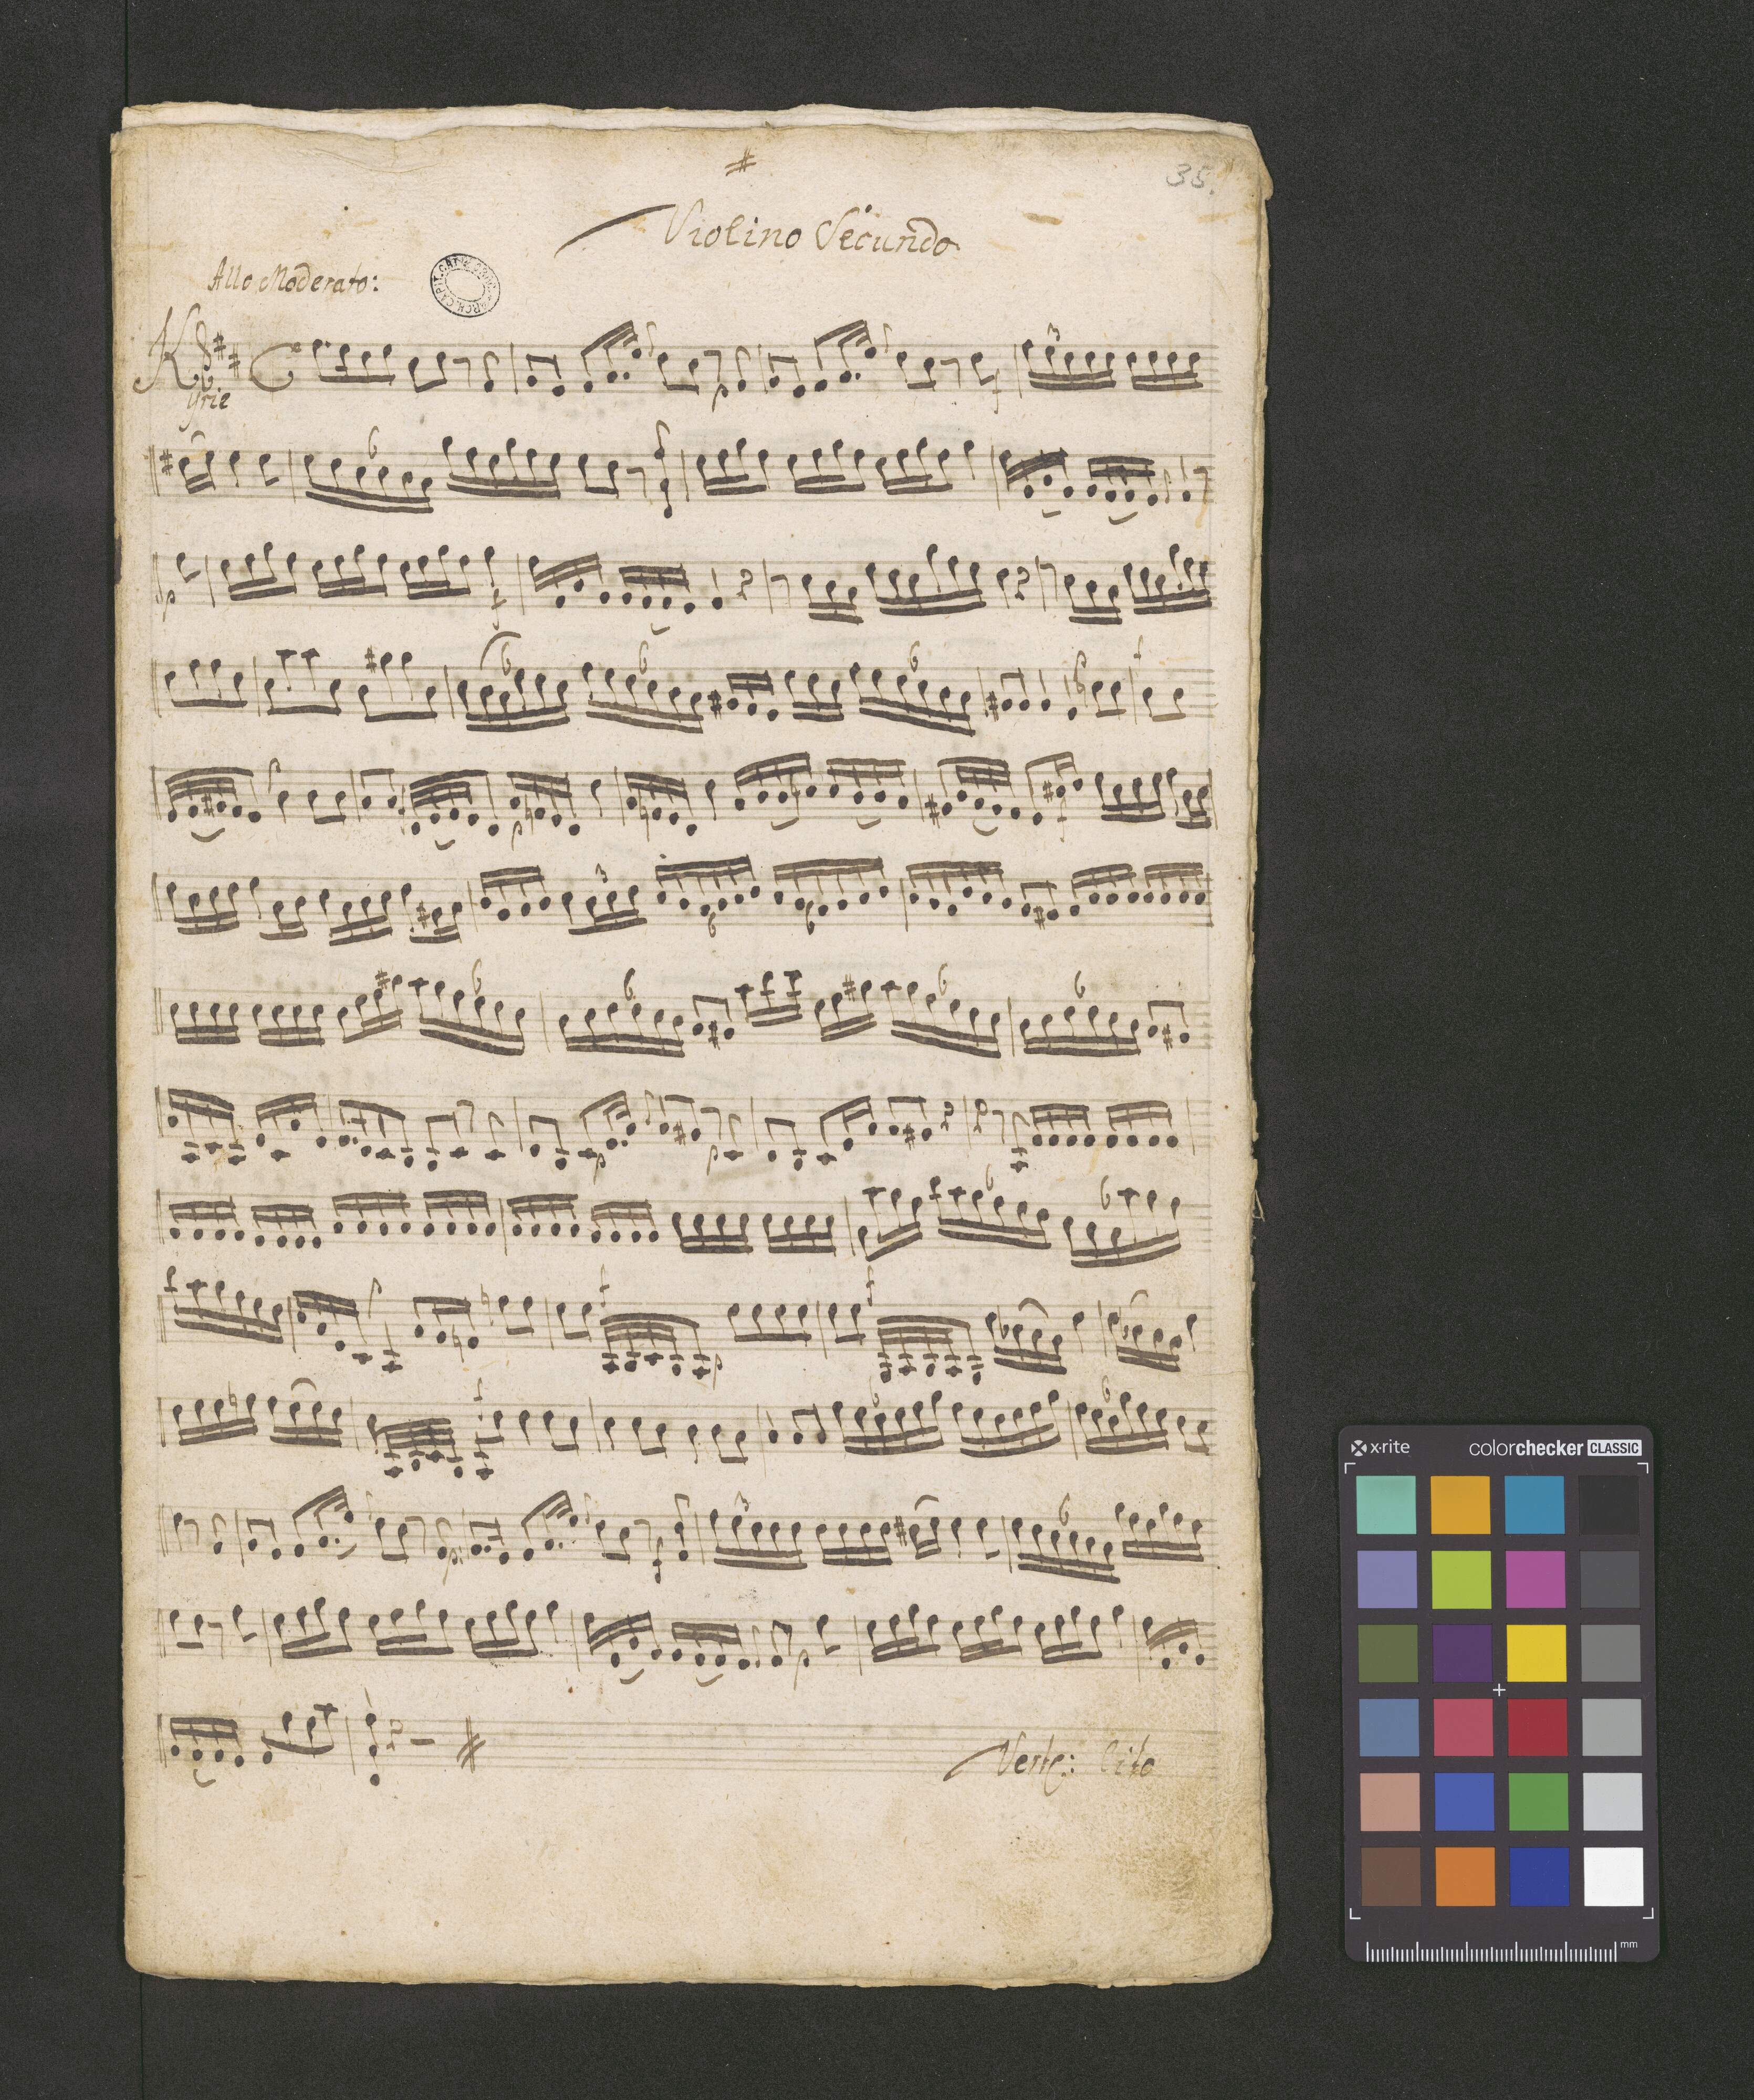 35.
Violino Secundo
Allo Moderato:
Kyrie
Verte: Cito
x·rite colorchecker CLASSIC
mm